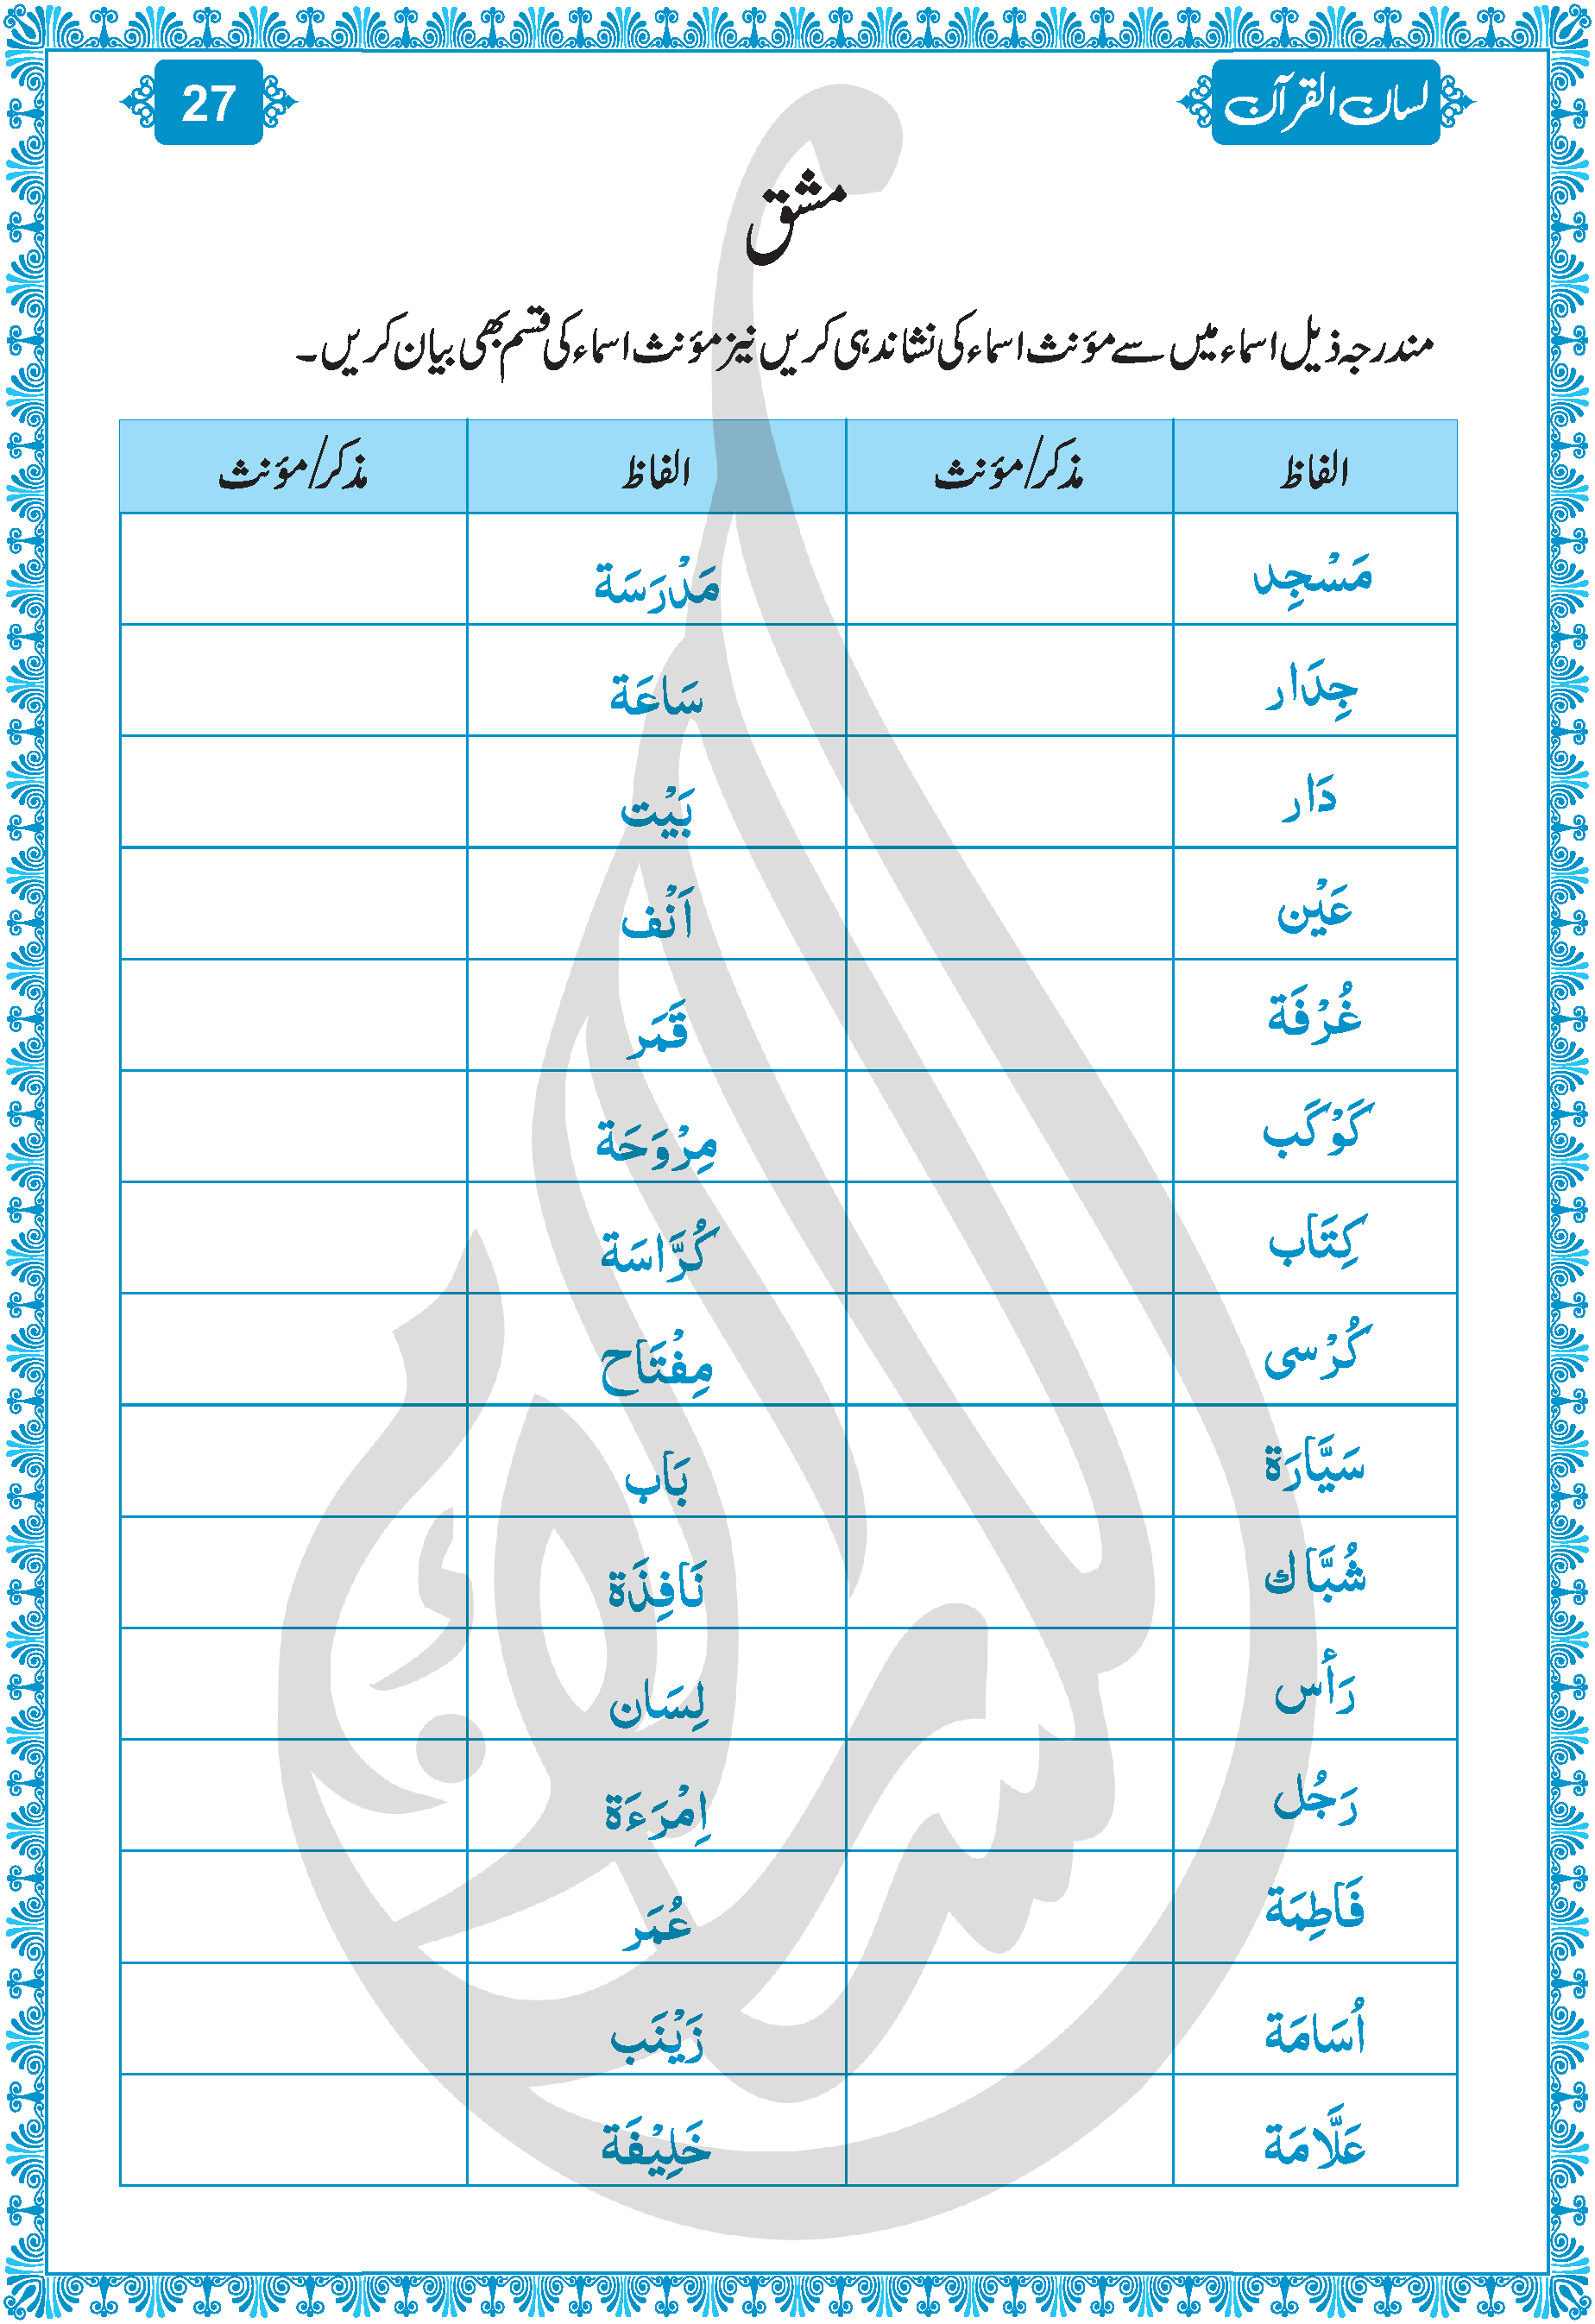 لسان القرآن
27
مشق
مندرجہ ذیل اسماء میں سے مؤنث اسماء کی نشاندہی کریں نیز مؤنث اسماء کی قسم بھی بیان کریں۔
الفاظ مذکر/مؤنث الفاظ مذکر/مؤنث
مَسْجِد مَدْرَسَة
جِدَار سَاعَة
دَار بَيْت
عَيْن اَنْف
غُرْفَة قَمَر
كَوْكَب مِرْوَحَة
كِتَاب كُرَّاسَة
كُرْسى مِفْتَاح
سَيَّارَة بَاب
شُبَّاك نَافِذَة
رَأس لِسَان
رَجُل اِمْرَءَة
فَاطِمَة عُمَر
اُسَامَة زَيْنَب
عَلَّامَة خَلِيْفَة